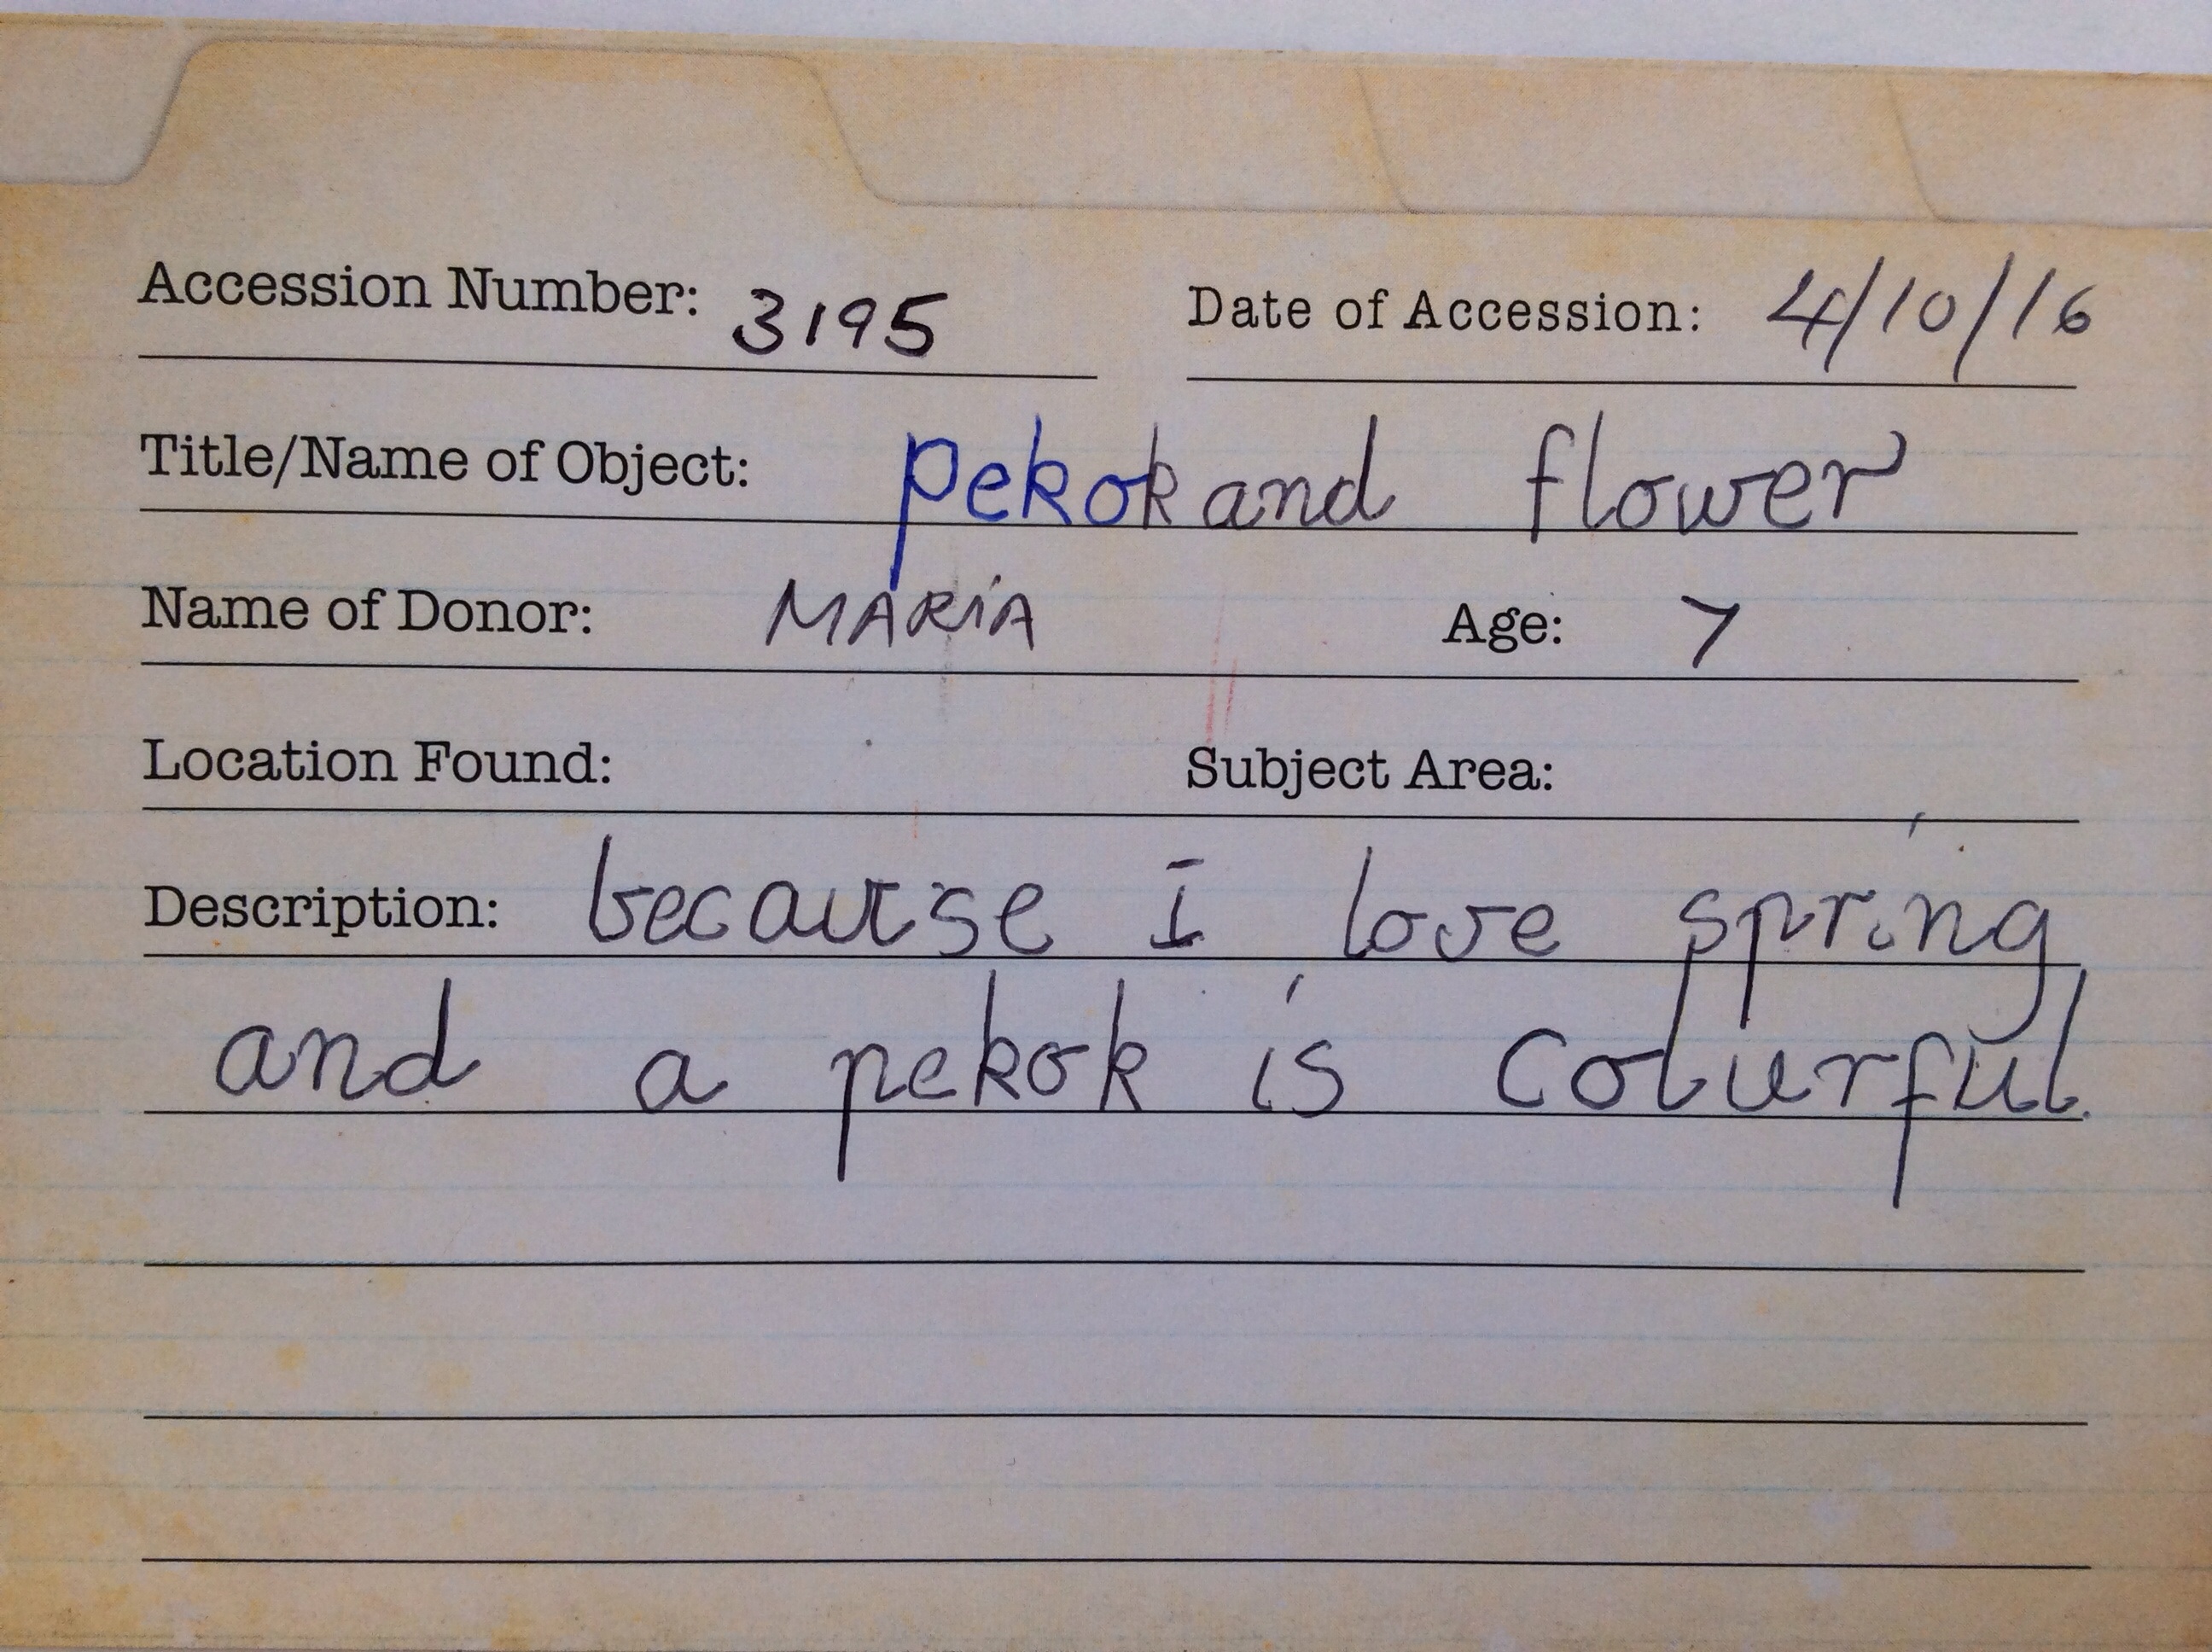 Accession Number: 3195 Date of Accession: 4/10/16
Title/Name of Object: pekok and flower
Name of Donor: MARiA Age: 7
Location Found: Subject Area:
Description: because I love spring
and a pekok is colurful.